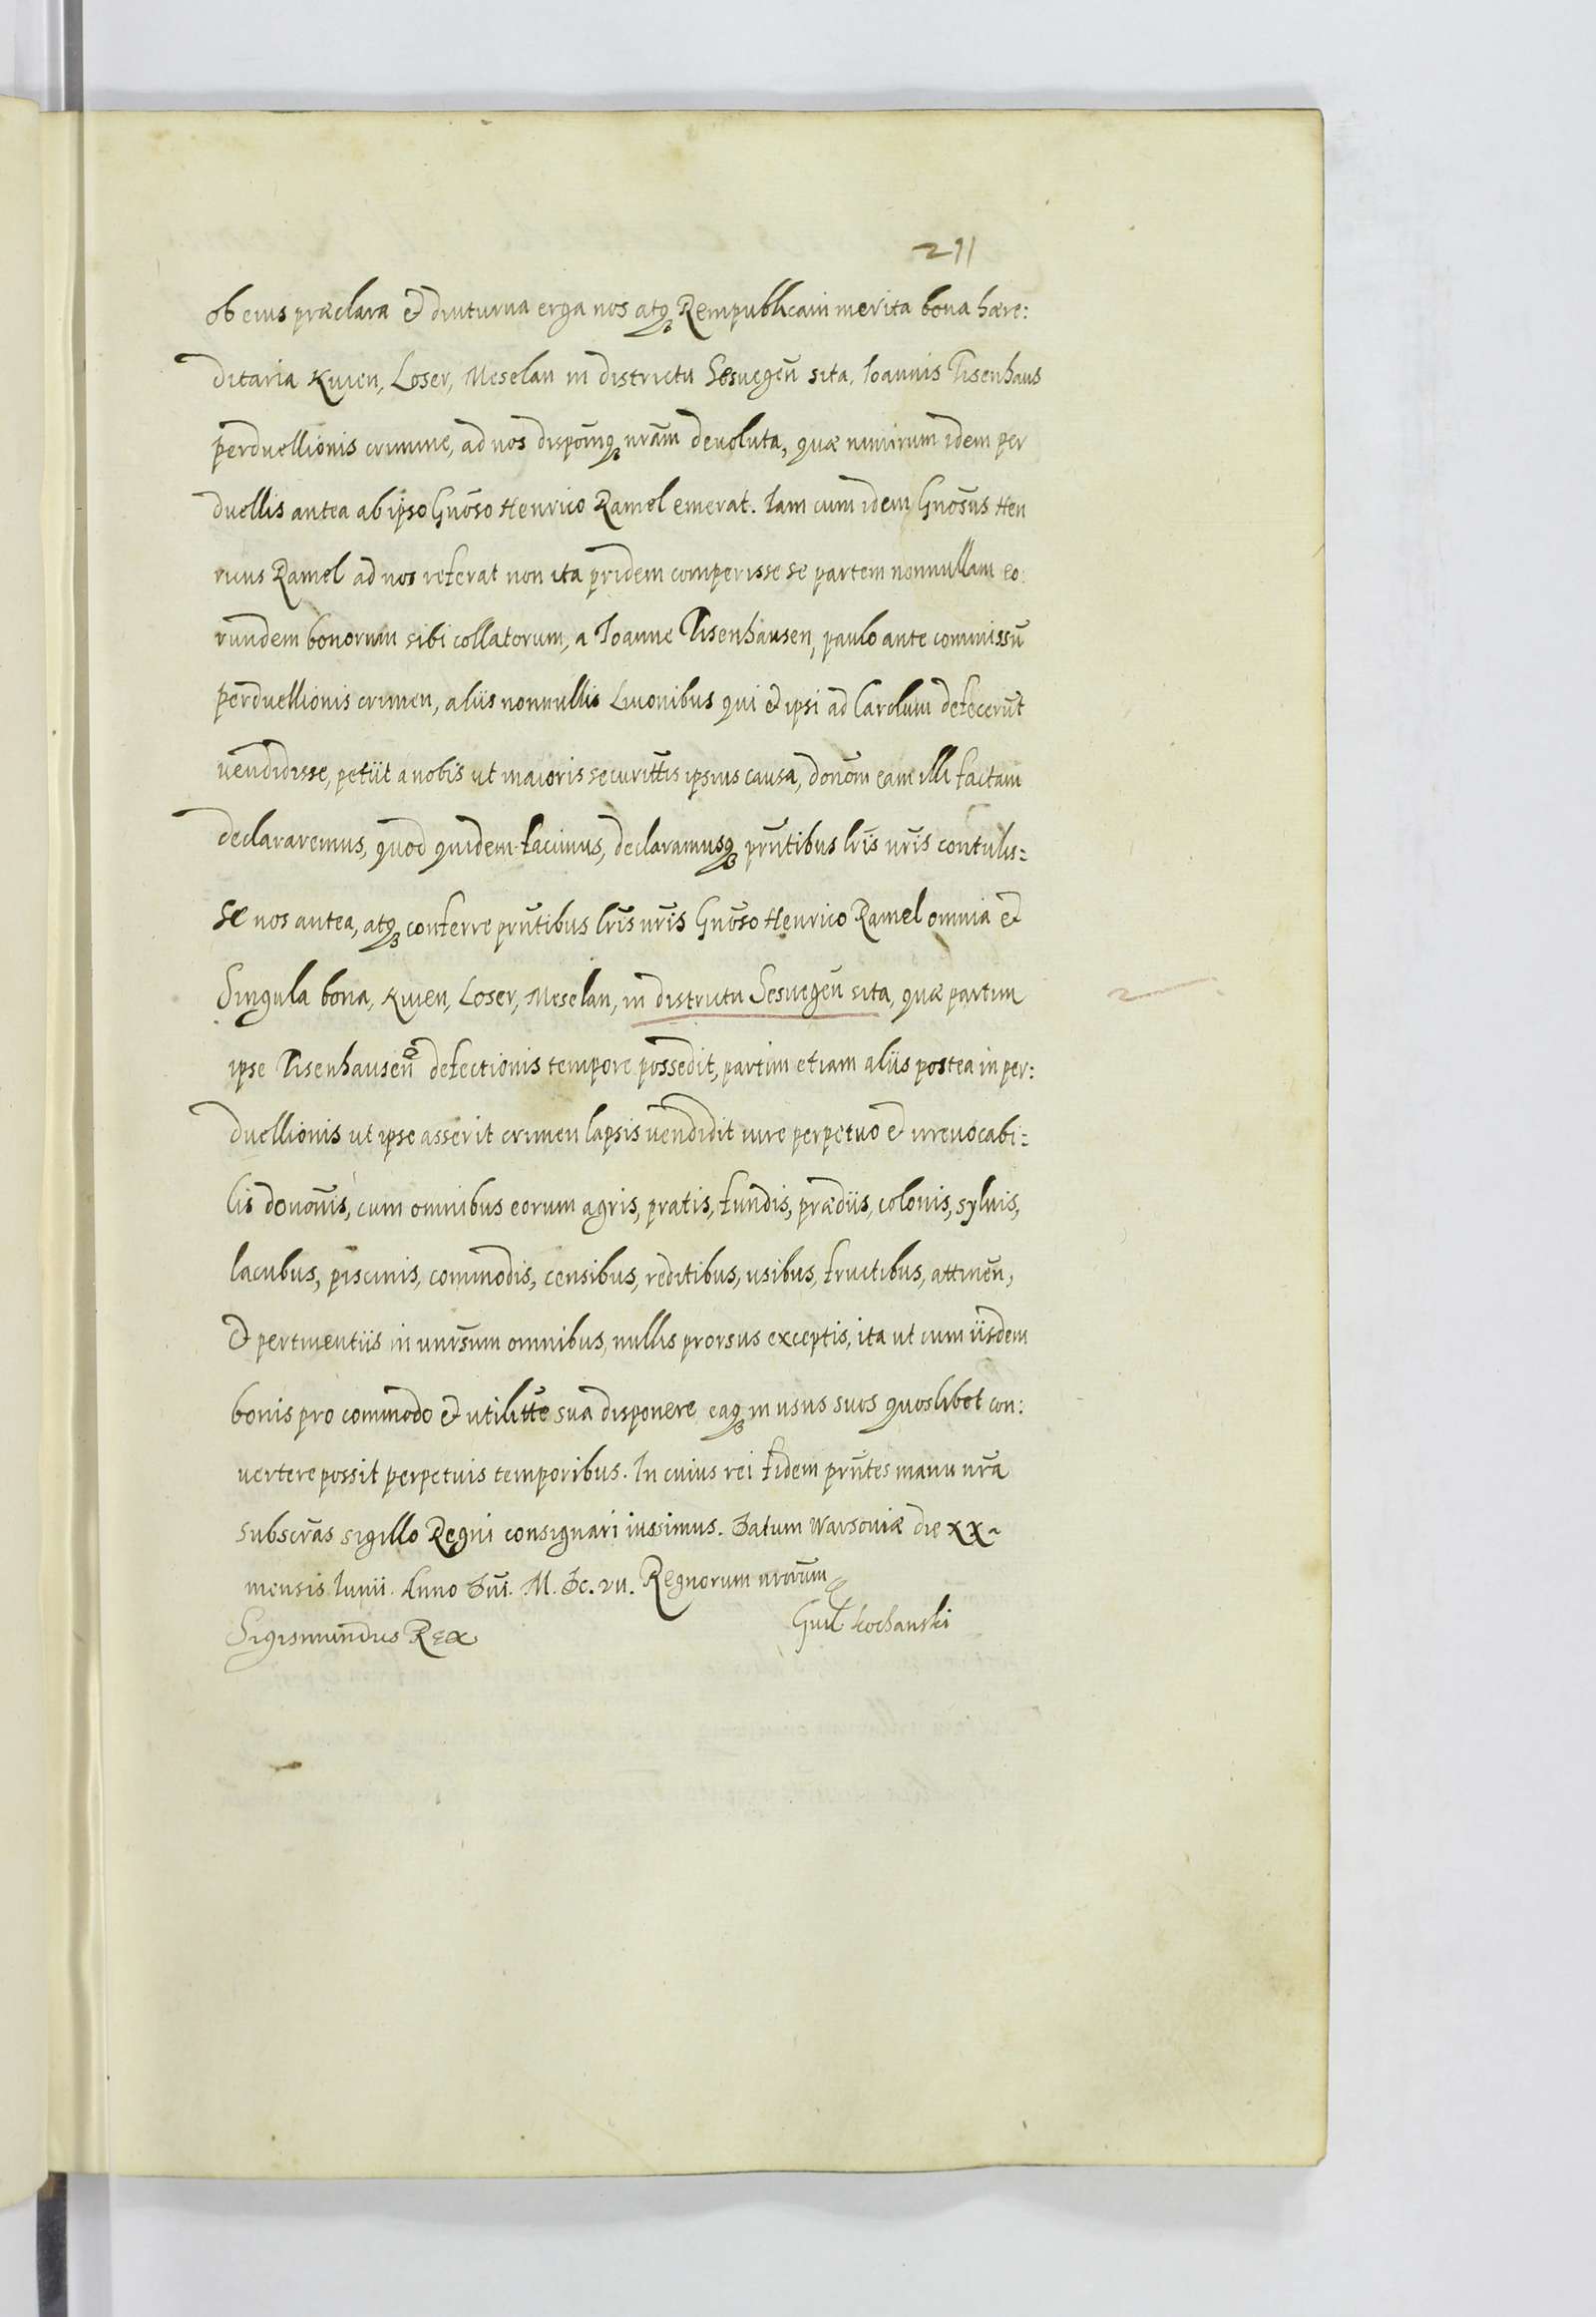 211
ob eius præclara et diuturna erga nos atq̨ Rempublicam merita bona hære:
ditaria Kuien, Loser, Meselan in districtu Sesuegeñ sita, Ioannis Tisenhaus
perduellionis crimine, ad nos dispõmq̨ nrãm deuoluta, quæ nimirum idem per
duellis antea ab ipso Gnõso Henrico Ramel emerat. Iam cum idem Gnõsus Hen
ricus Ramel ad nos referat non ita pridem comperisse se partem nonnullam eo:
rundem bonorum sibi collatorum, a Ioanne Tisenhausen, paulo ante commissũ
perduellionis crimen, aliis nonnullis Liuonibus qui et ipsi ad Carolum defecerũt
vendidisse, petiit a nobis ut maioris securittis ipsius causa, donõm eam illi factam
declararemus, quod quidem facimus, declaramusq̨ prñtibus lris nris contulis=
se nos antea, atq̨ conferre prñtibus lris nris Gnõso Henrico Ramel omnia et
Singula bona, Kuien, Loser, Meselan, in districtu Sesuegeñ sita, quæ partim
ipse Tisenhauseñ defectionis tempore possedit, partim etiam aliis postea in per:
duellionis ut ipse asserit crimen lapsis vendidit iure perpetuo et irreuocabi=
lis donõnis, cum omnibus eorum agris, pratis, fundis, prædiis, colonis, syluis,
lacubus, piscinis, commodis, censibus, reditibus, usibus, fructibus, attineñ,
et pertinentiis in unrsum omnibus, nullis prorsus exceptis, ita ut cum iisdem
bonis pro commodo et utilitte sua disponere eaq̨ in usus suos quoslibet con:
vertere possit perpetuis temporibus. In cuius rei fidem prñtes manu nrã
subscrãs sigillo Regni consignari iussimus. Datum Warsouiæ die XX
mensis Iunii. Anno Dñi. M. Dc. vii. Regnorum nrorum
Sigismundus Rex Guil Kochanski